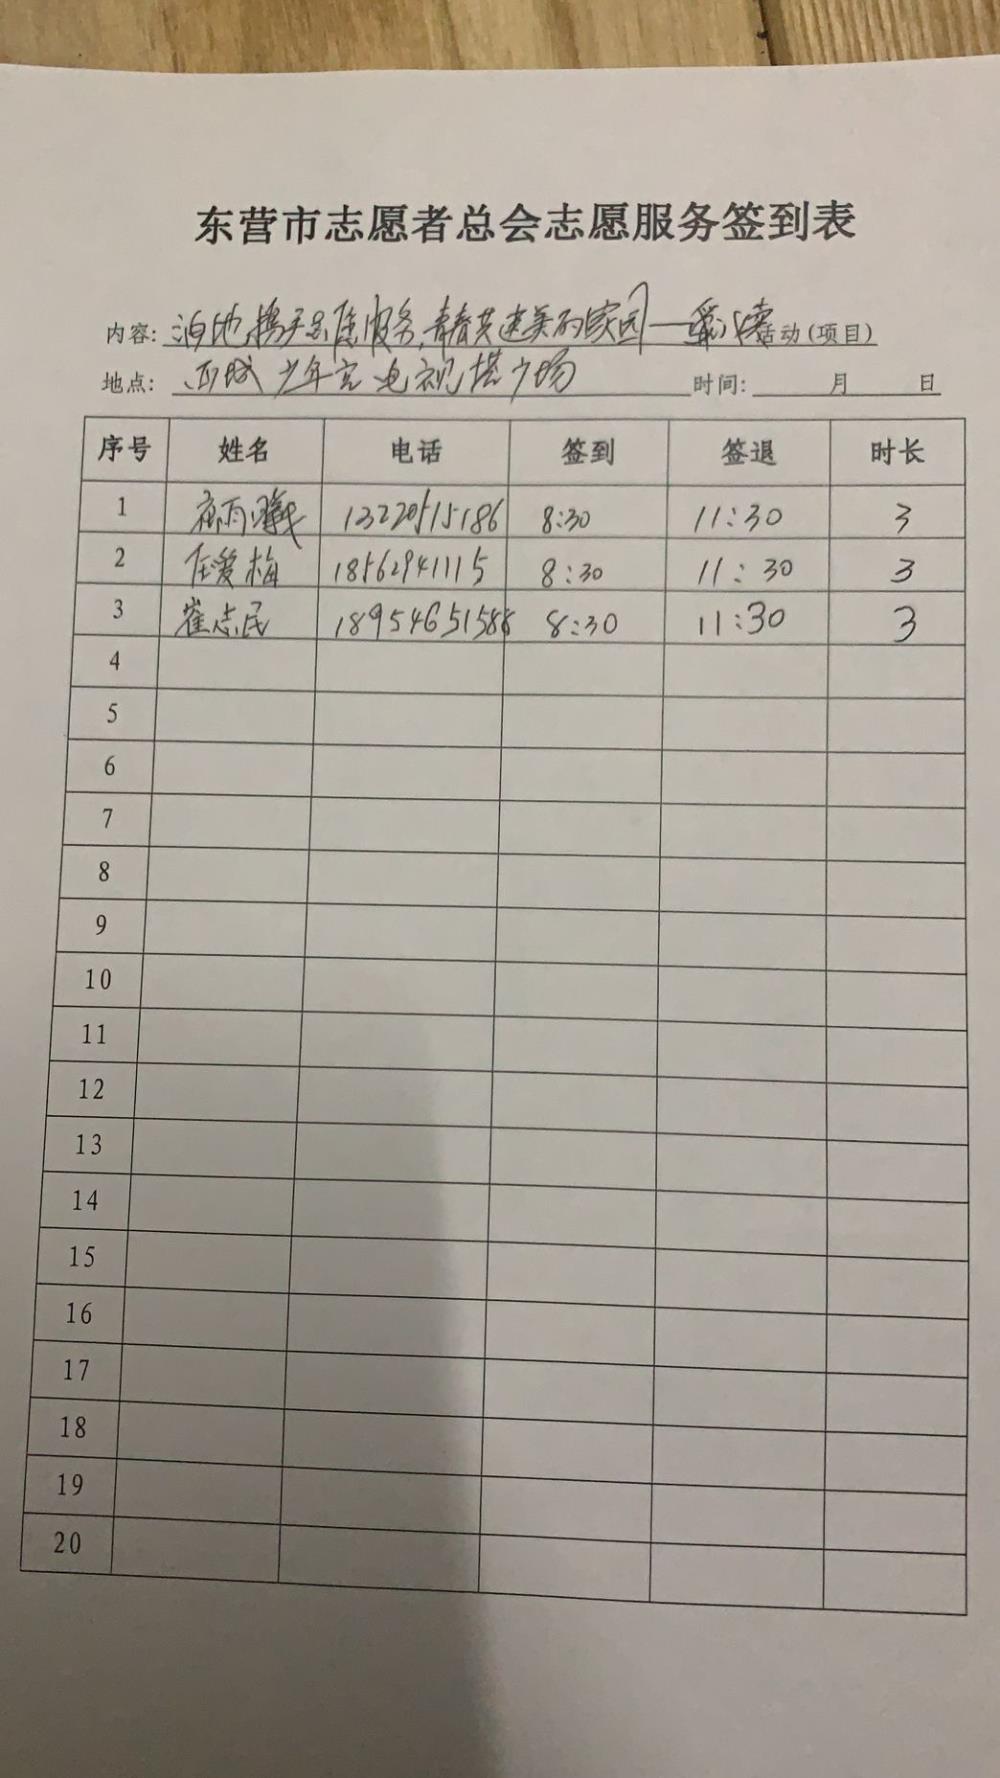 东营市志愿者总会志愿服务签到表
内容: 油地携手志愿服务,青春共建美丽家园— 活动(项目)
地点: 西城少年宫电视塔广场 时间: 月 日
序号 姓名 电话 签到 签退 时长
1 雨曦 13220515186 8:30 11:30 3
2 任爱梅 18562941115 8:30 11:30 3
3 崔志民 18954651588 8:30 11:30 3
4
5
6
7
8
9
10
11
12
13
14
15
16
17
18
19
20